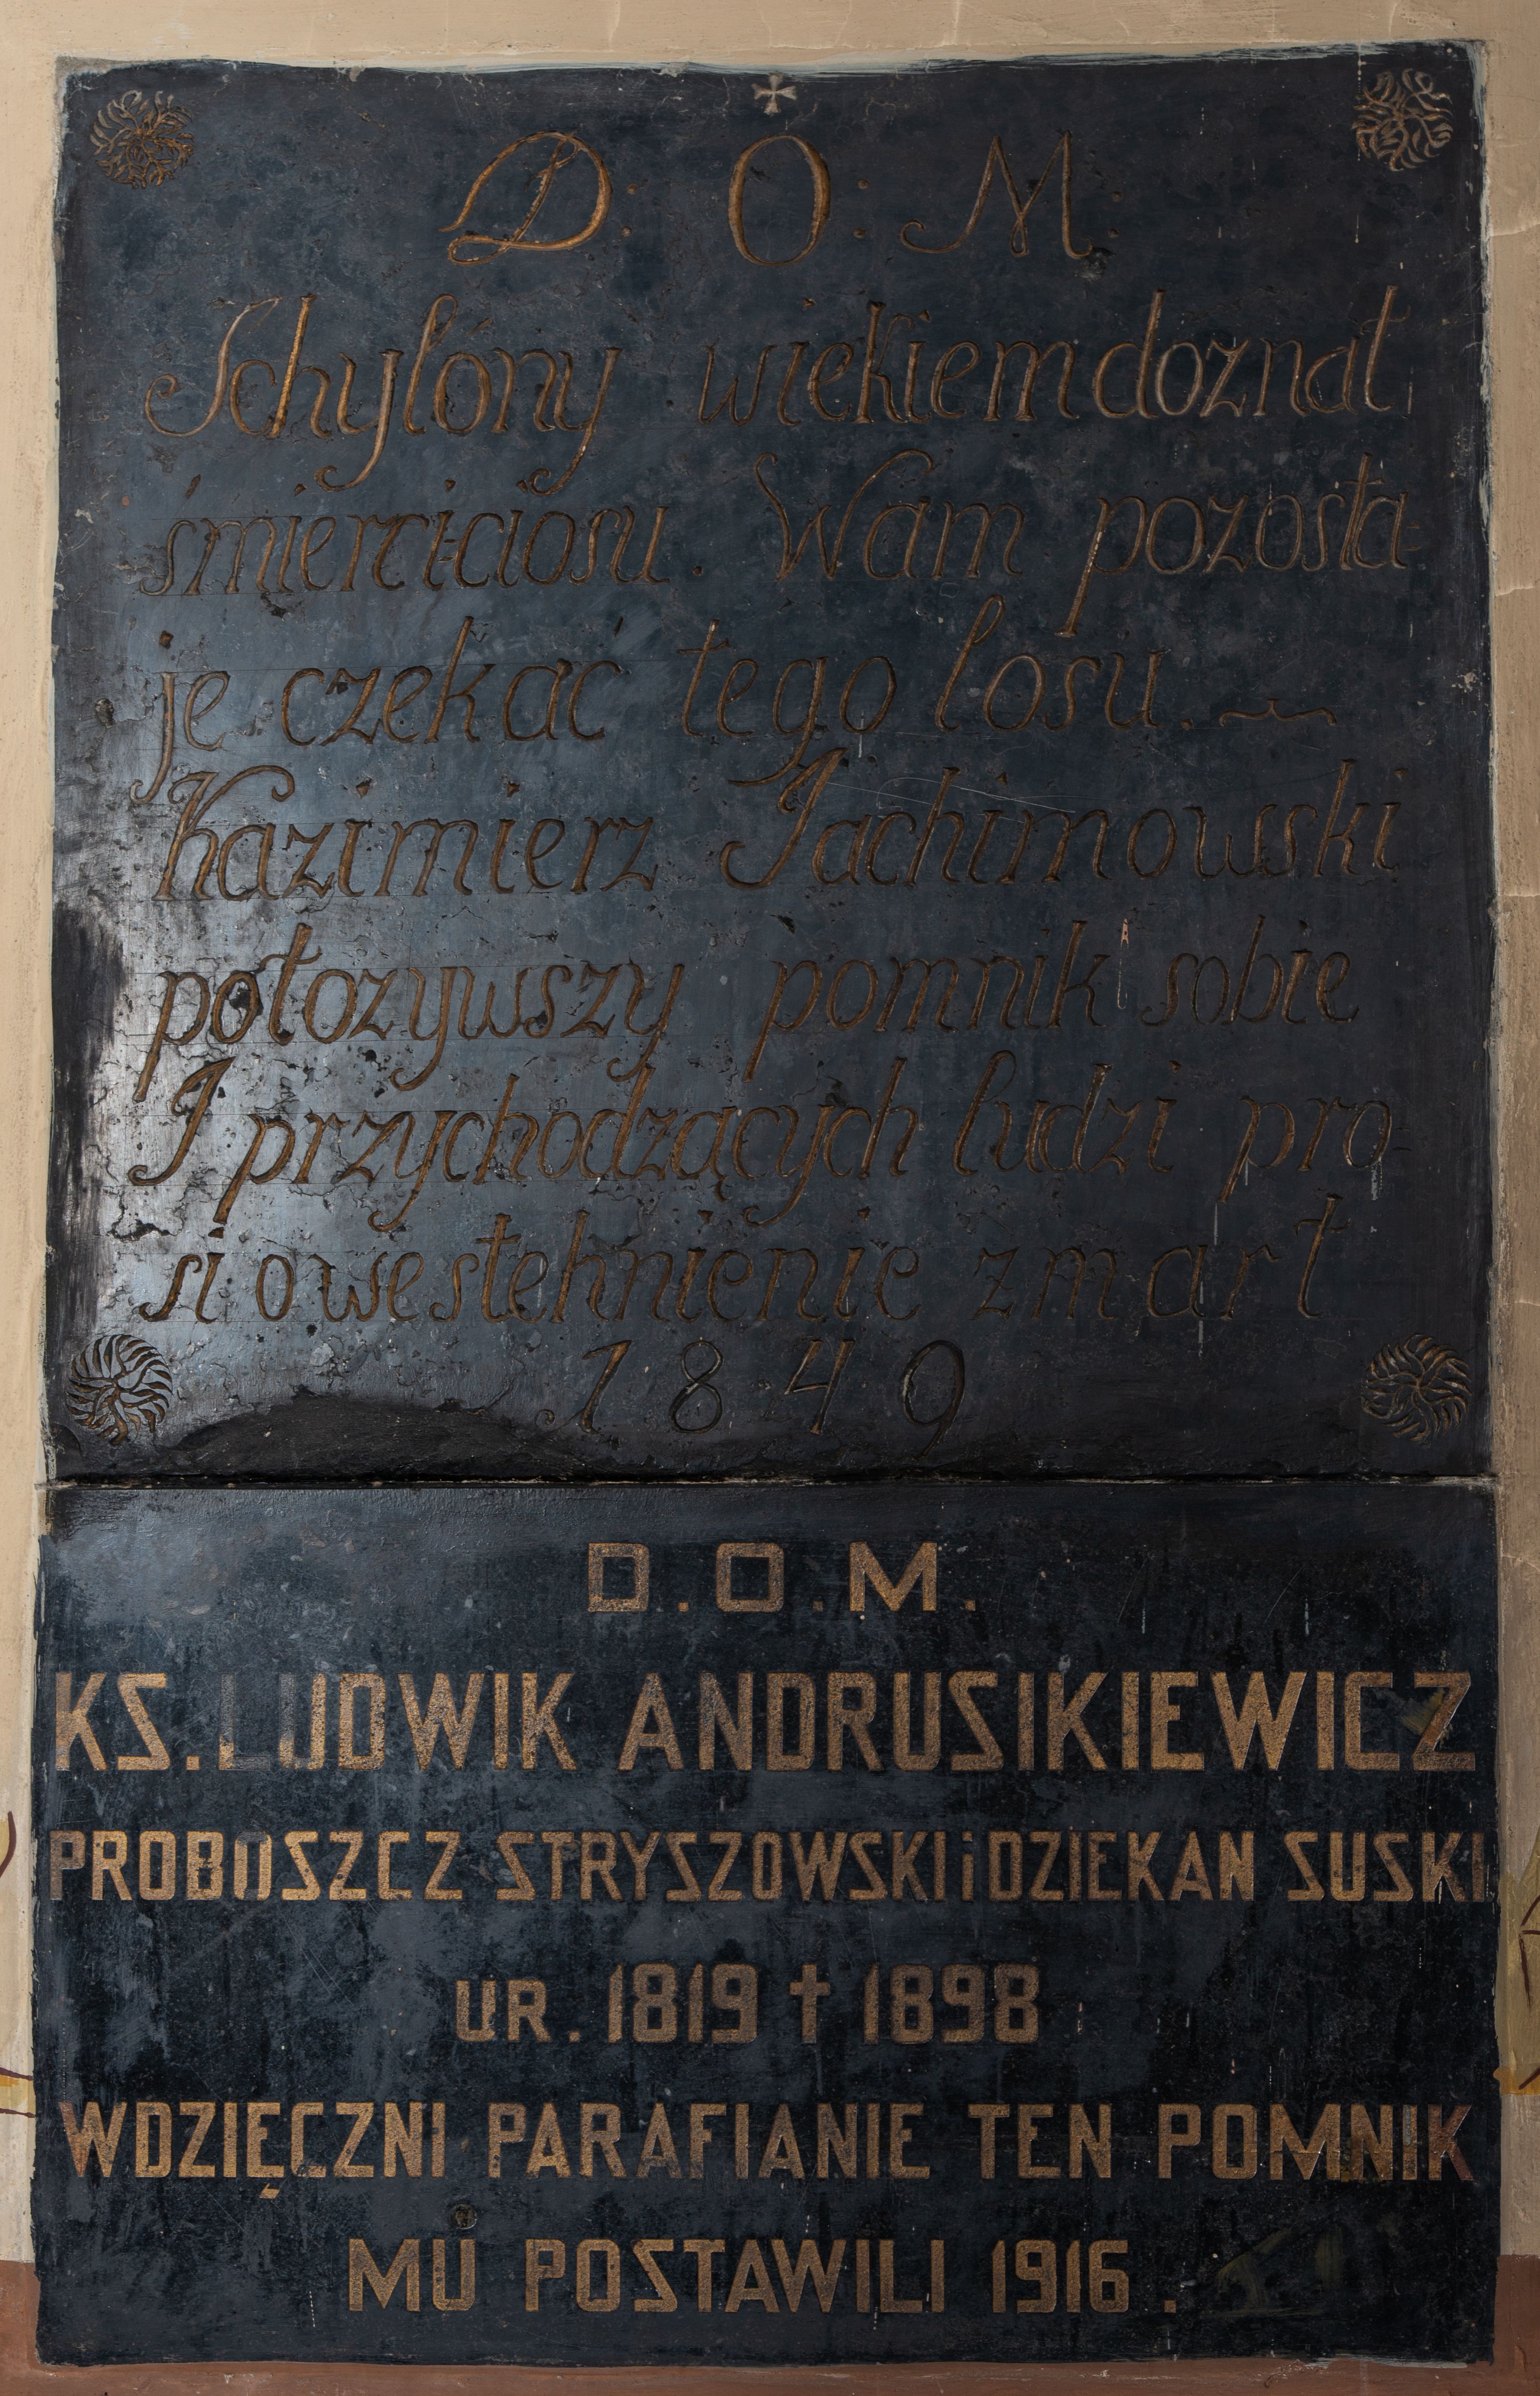 D: O: M:
Schylóny wiekiem doznał
śmierci-ciosu. Wam pozosta-
je czekać tego losu.
Kazimierz Jachimowski
położywszy pomnik sobie
I przychodzących ludzi pro-
si owestehnienie zmarł
1849
D.O.M.
KS. LUDWIK ANDRUSIKIEWICZ
PROBOSZCZ STRYSZOWSKI i DZIEKAN SUSKI
UR. 1819 † 1898
WDZIĘCZNI PARAFIANIE TEN POMNIK
MU POSTAWILI 1916.